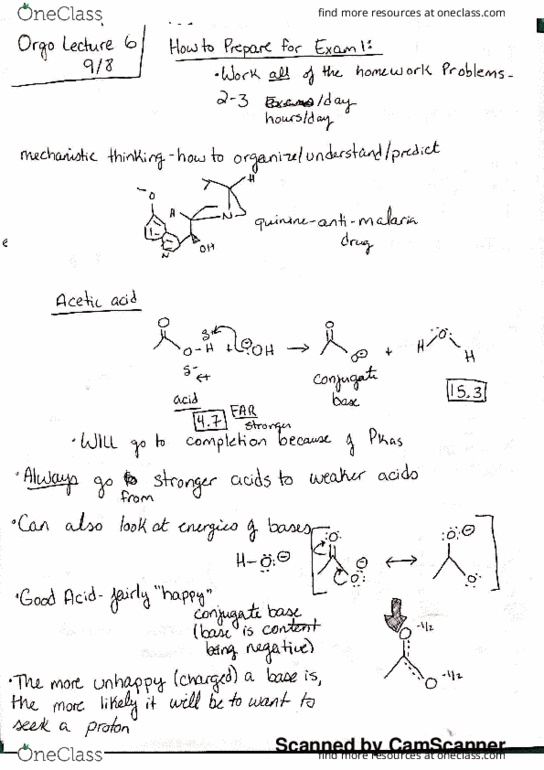 OneClass
find more resources at oneclass.com
Orgo Lecture 6
9/8
How to Prepare for Exam 1:
• Work all of the homework Problems -
2-3 /day
hours/day
mechanistic thinking - how to organize/understand/predict
H
O
N
OH
N
quinine - anti - malaria
drug
e
Acetic acid
O
O-H + ⊖OH → O O⊖ + H O H
δ-
acid
4.7
FAR
stronger
conjugate
base
15.3
• Will go to completion because of Pkas
• Always go to stronger acids to weaker acids
from
• Can also look at energies of bases
H-O:⊖
O O⊖ ↔ O⊖ O
• Good Acid - fairly "happy"
conjugate base
(base is content
being negative)
O -1/2
O -1/2
• The more unhappy (charged) a base is,
the more likely it will be to want to
seek a proton
Scanned by CamScanner
OneClass
find more resources at oneclass.com